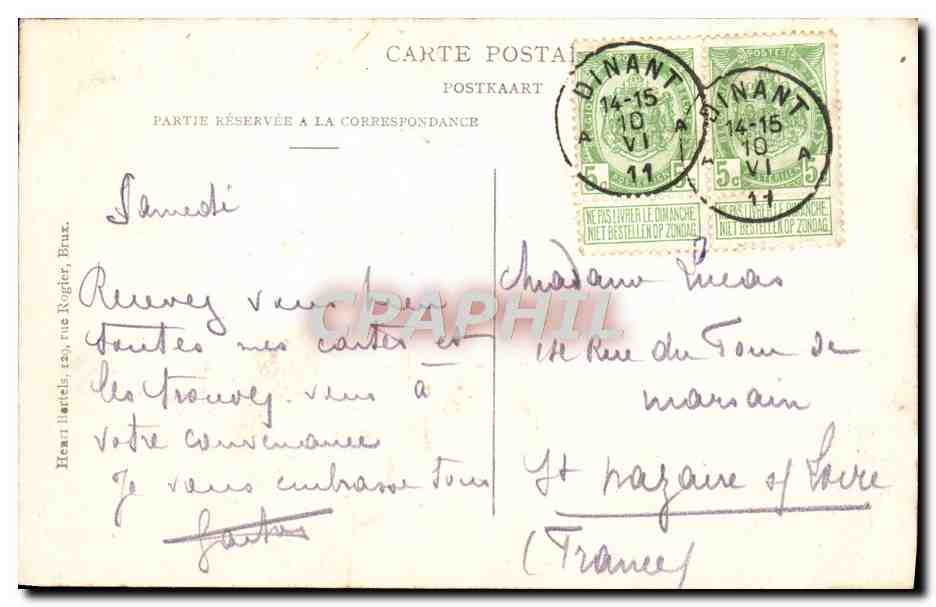 CARTE POSTAL
POSTKAART
PARTIE RÉSERVÉE A LA CORRESPONDANCE
DINANT
14-15
10
VI
11
A A
DINANT
14-15
10
VI
11
A
POSTES
5c 5c
5c 5
NE PAS LIVRER LE DIMANCHE
NIET BESTELLEN OP ZONDAG
NE PAS LIVRER LE DIMANCHE
NIET BESTELLEN OP ZONDAG
Samedi
Recevez vous bien
toutes mes cartes et
les trouvez vous à
votre convenance
Je vous embrasse tous
Gaston
Madame Lucas
Rue du Four de
marsain
St nazaire s/ Loire
(France)
Henri Bertels, 129, rue Rogier, Brux.
CPAPHIL